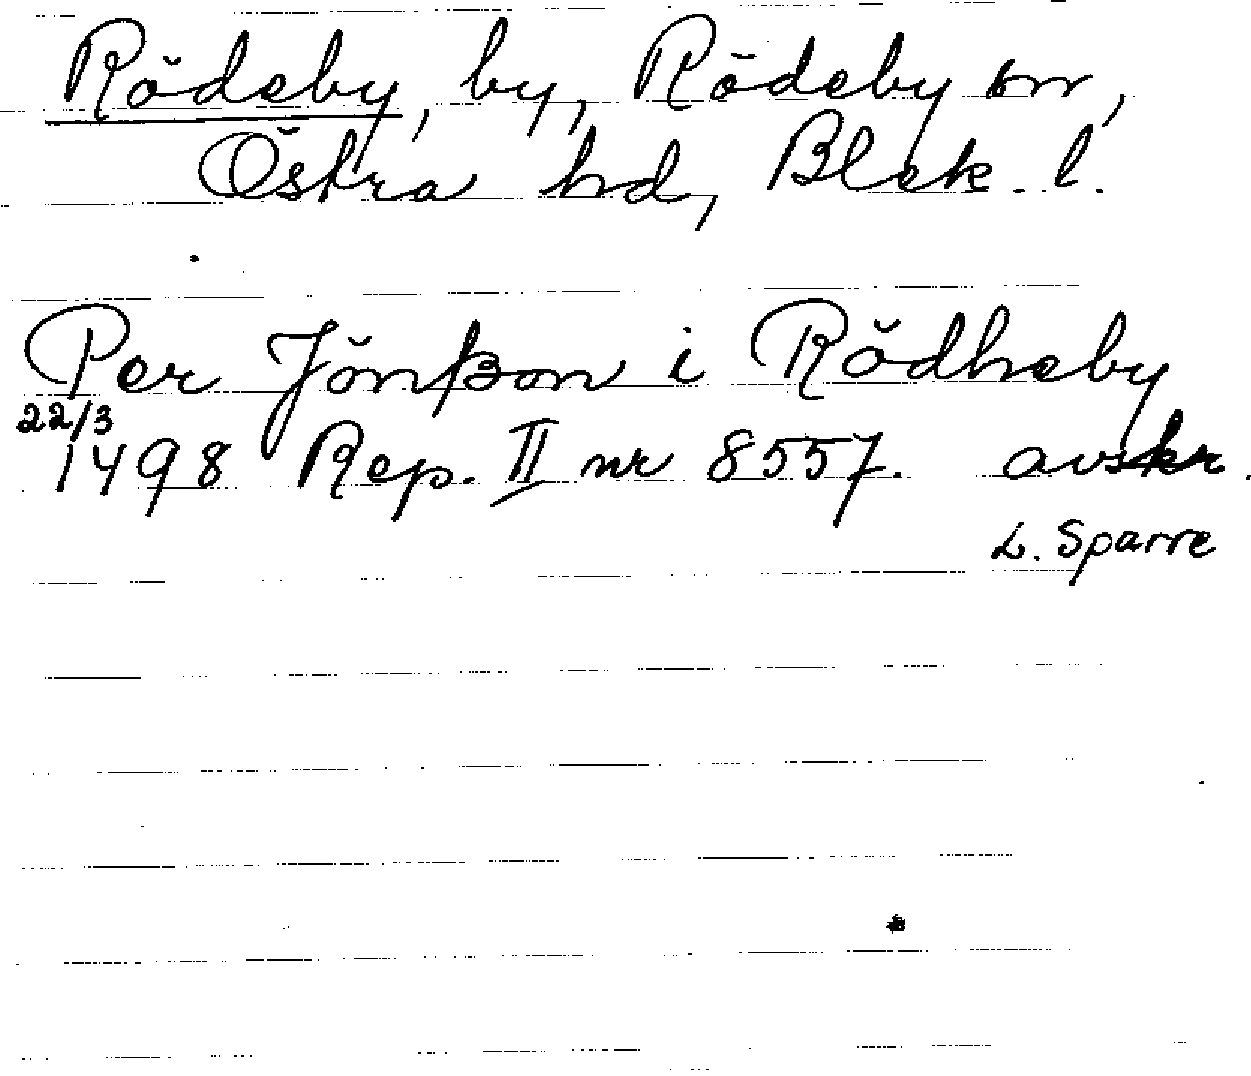 Rödeby, by, Rödeby sn,
Östra hd, Blek. l.
Per Jönßon i Rödheby
22/3
1498 Rep. II nr 8557. avskr.
L. Sparre